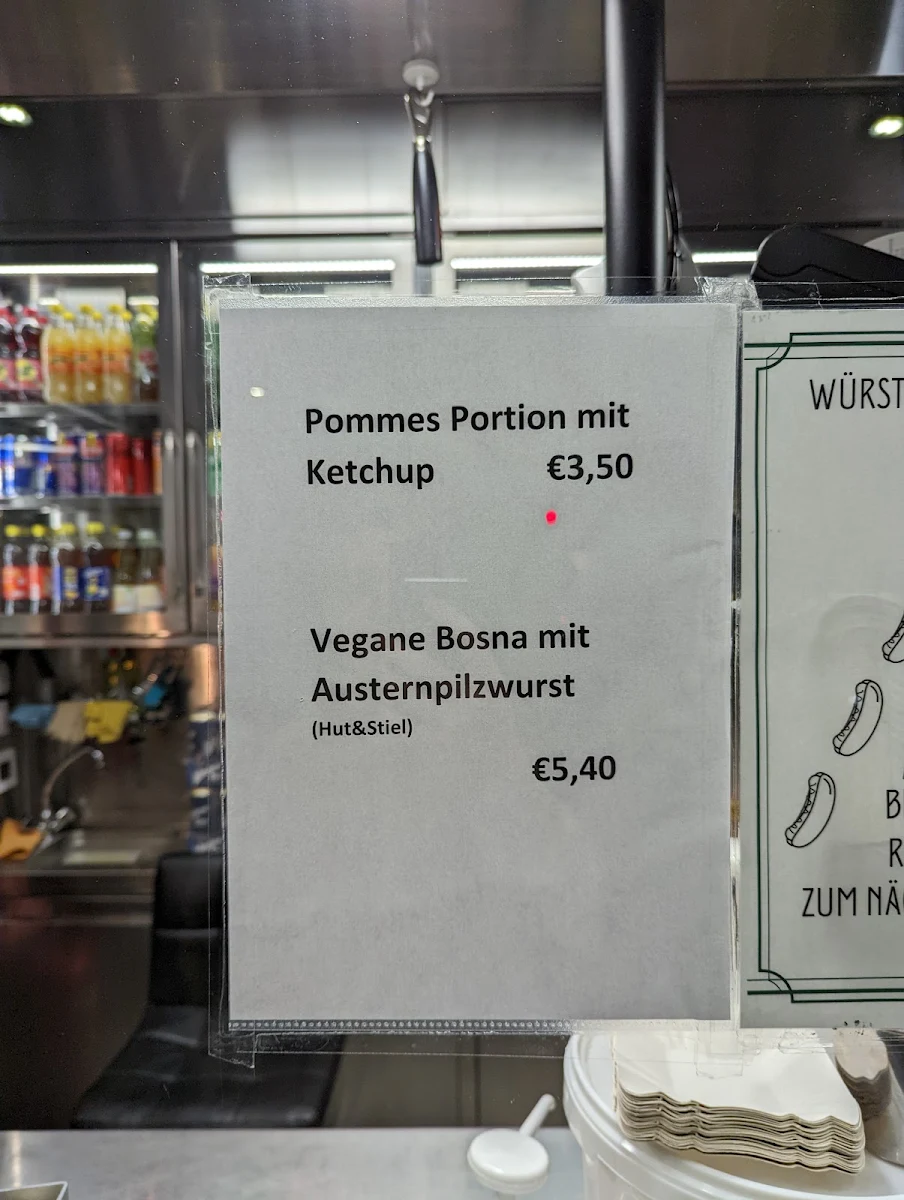 Pommes Portion mit
Ketchup €3,50
Vegane Bosna mit
Austernpilzwurst
(Hut&Stiel)
€5,40
ZUM